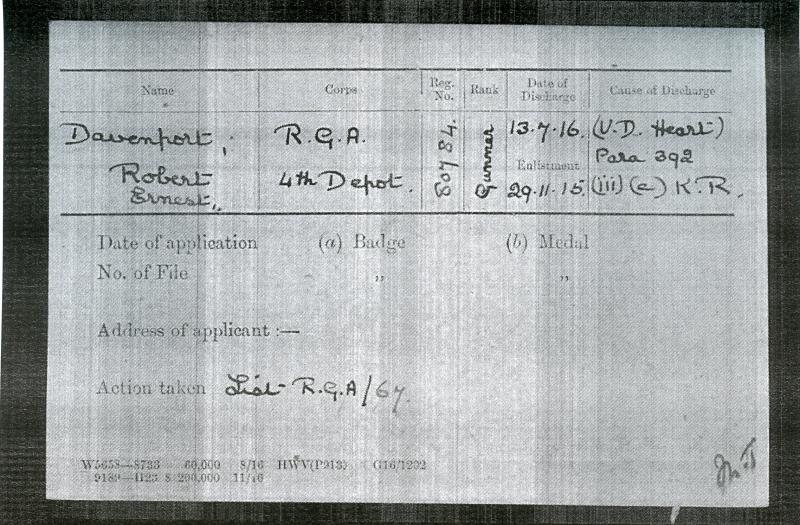 Name Corps Reg. No. Rank Date of Discharge Cause of Discharge
Davenport, R.G.A. 80784. Gunner 13.7.16. (V.D. Heart)
Enlistment Para 392
Robert 4th Depot. 29.11.15. (iii) (c) K.R.
Ernest,,
Date of application (a) Badge (b) Medal
No. of File „ „
Address of applicant :—
Action taken List R.G.A/67.
W5658—8733 60,000 8/16 HWV(P913) G16/1202
9189—1123 8 200,000 11/16